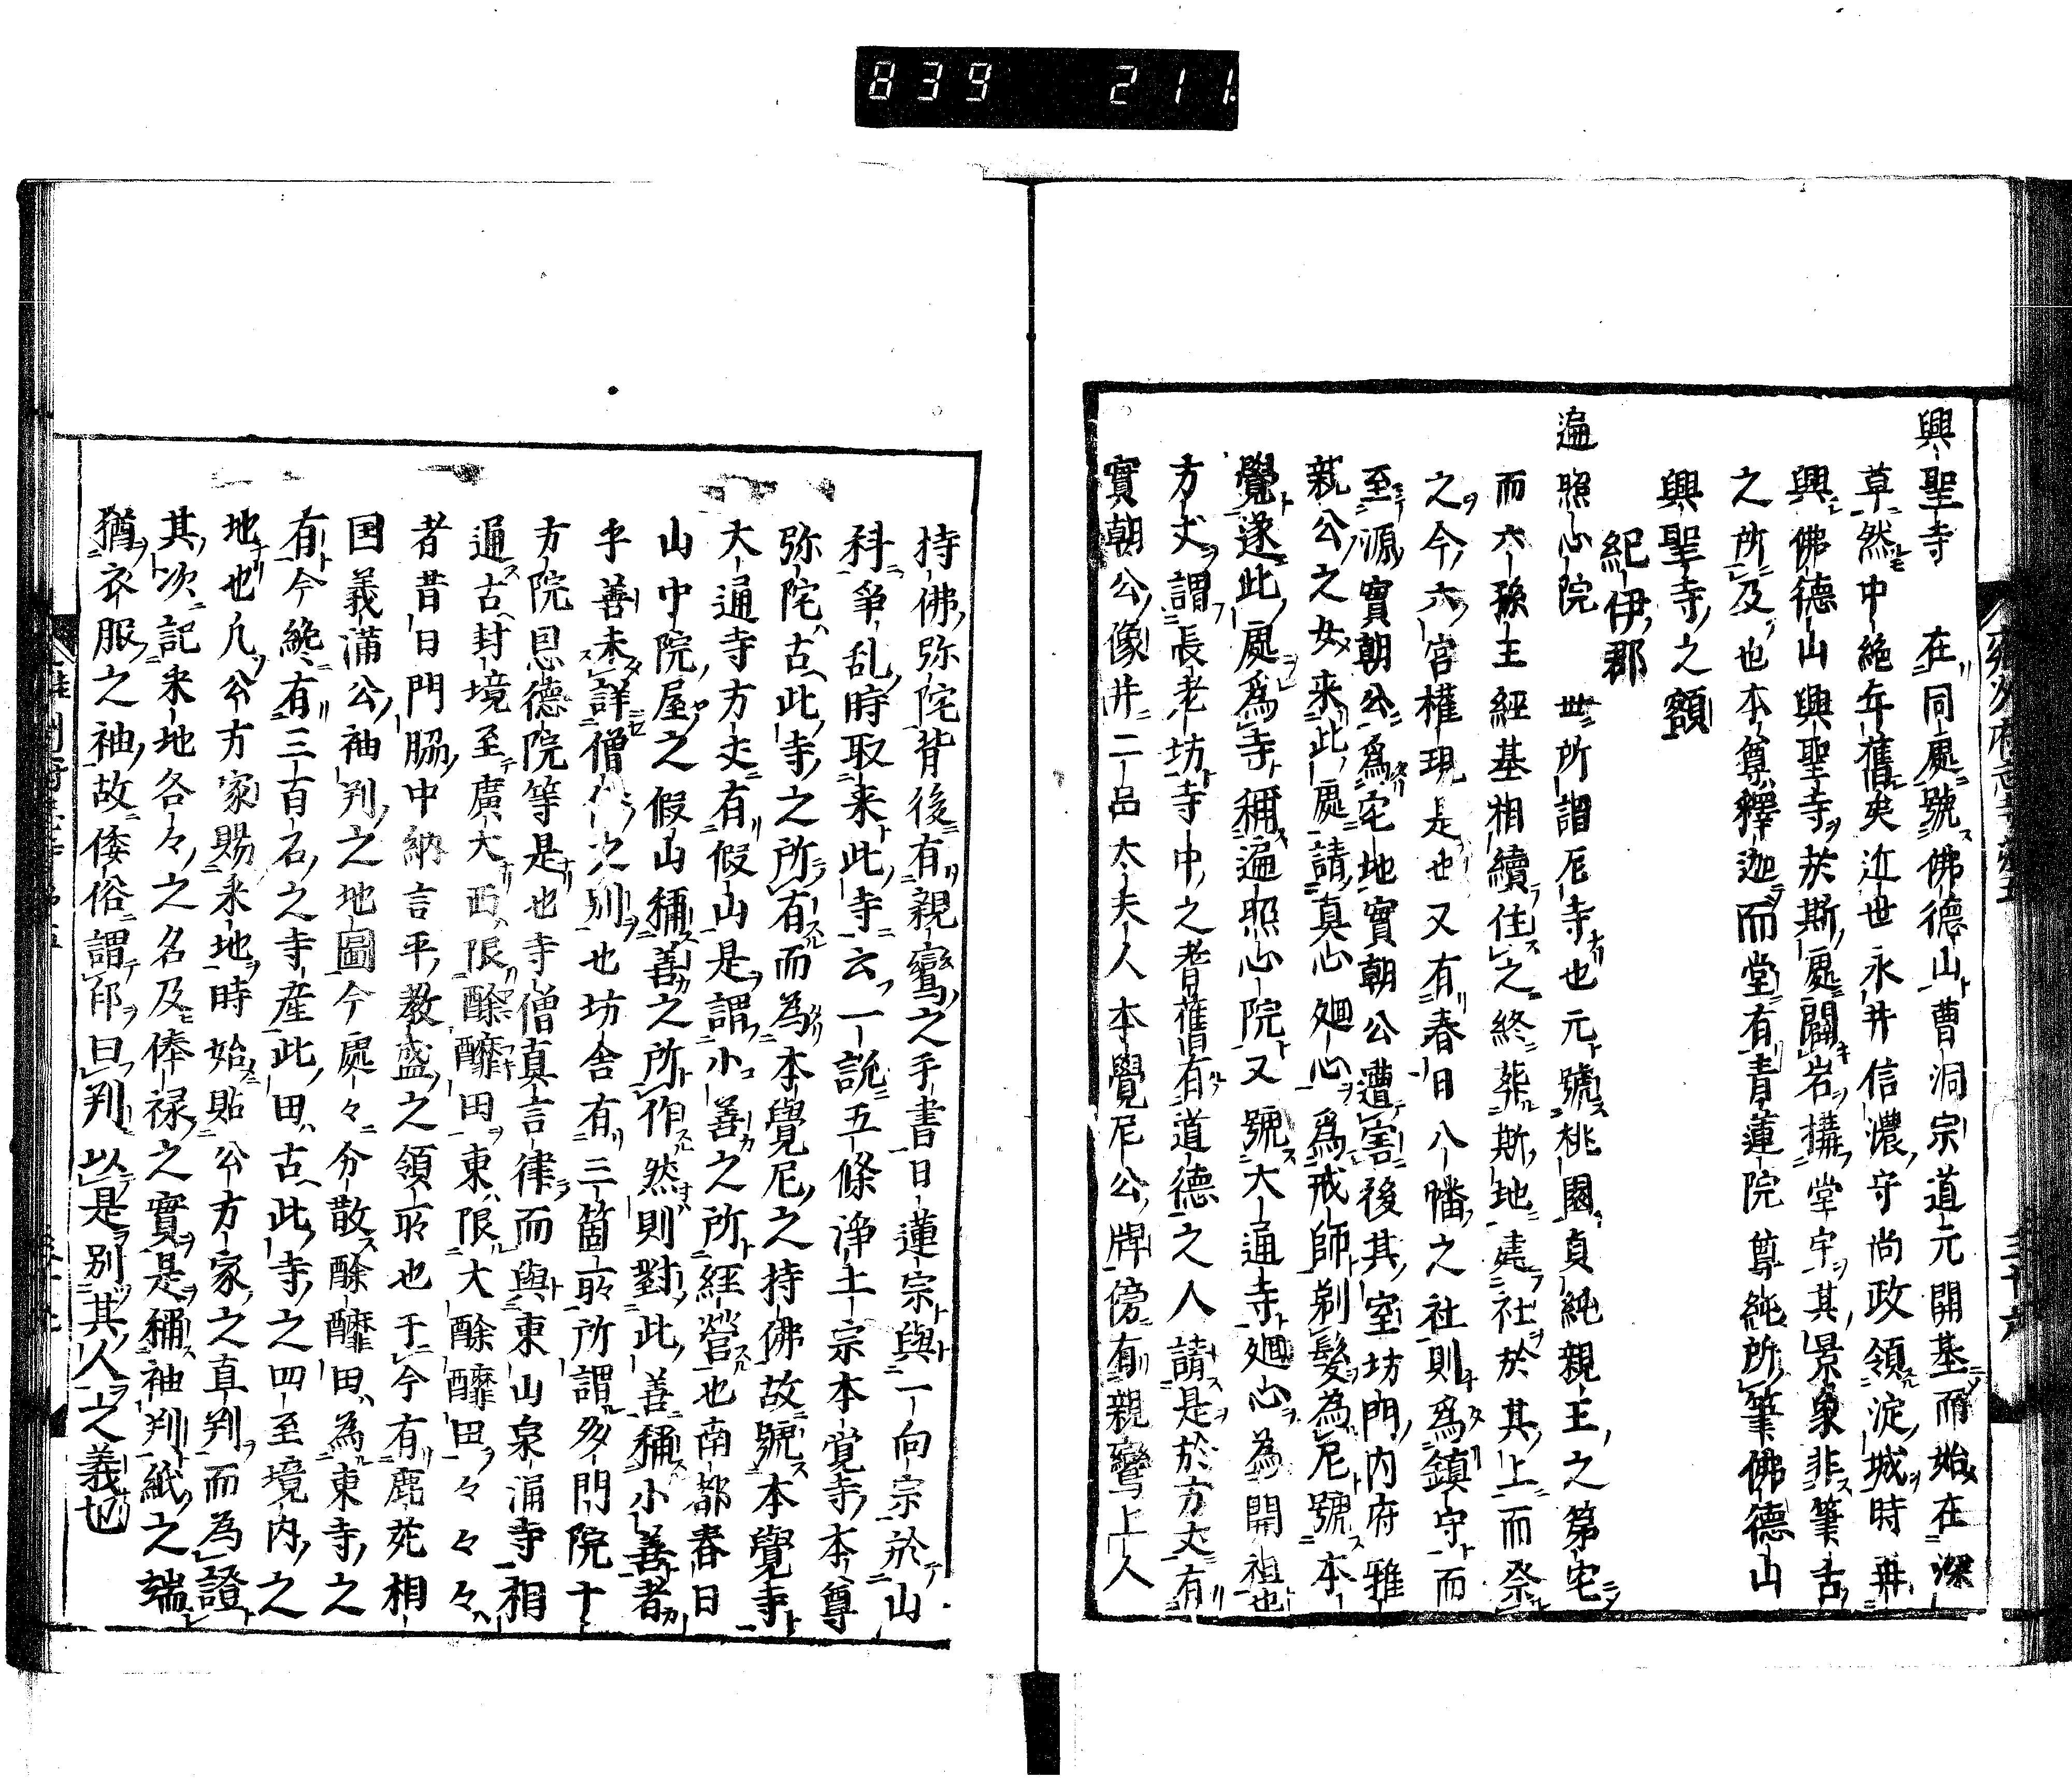 839 211
興聖寺 在同處號佛德山曹洞宗道元開基而始在深
草然中絶年舊矣近世永井信濃守尚政領淀城時再
興佛德山興聖寺於斯處闢岩構堂宇其景象非筆舌
之所及也本尊釋迦而堂有青蓮院尊純所筆佛德山
興聖寺之額
紀伊郡
遍照心院 世所謂尼寺也元號桃園貞純親王之第宅
而六孫王經基相續住之終葬斯地建社於其上而祭
之今六宮權現是也又有春日八幡之社則爲鎮守而
至源實朝公爲宅地實朝公遭害後其室坊門内府雅
親公之女来此處請真心廻心爲戒師剃髮為尼號本
覺遂此處爲寺稱遍照心院又號大通寺廻心為開祖也
方丈謂長老坊寺中之耆舊有道德之人請是於方丈有
實朝公像并二品大夫人本覺尼公牌傍有親鸞上人
持佛弥陀背後有親鸞之手書日蓮宗與一向宗於山
科爭乱時取来此寺云一説五條浄土宗本覚寺本尊
弥陀古此寺之所有而為本覺尼之持佛故號本覺寺
大通寺方丈有假山是謂小善之所經營也南都春日
山中院屋之假山稱善之所作然則對此善稱小善者
乎善未詳僧俗之別也坊舎有三箇所所謂多門院十
方院恩德院等是也寺僧真言律而與東山泉涌寺相
通古封境至廣大西限酴醾田東限大酴醾田々々々
者昔日門脇中納言平教盛之領所也于今有鹿苑相
国義満公袖判之地圖今處々分散酴醾田為東寺之
有今纔有三百石之寺産此田古此寺之四至境内之
地也凡公方家賜米地時始貼公方家之直判而為證
其次記米地各々之名及俸禄之實是稱袖判紙之端
猶衣服之袖故倭俗謂印曰判以是別其人之義也